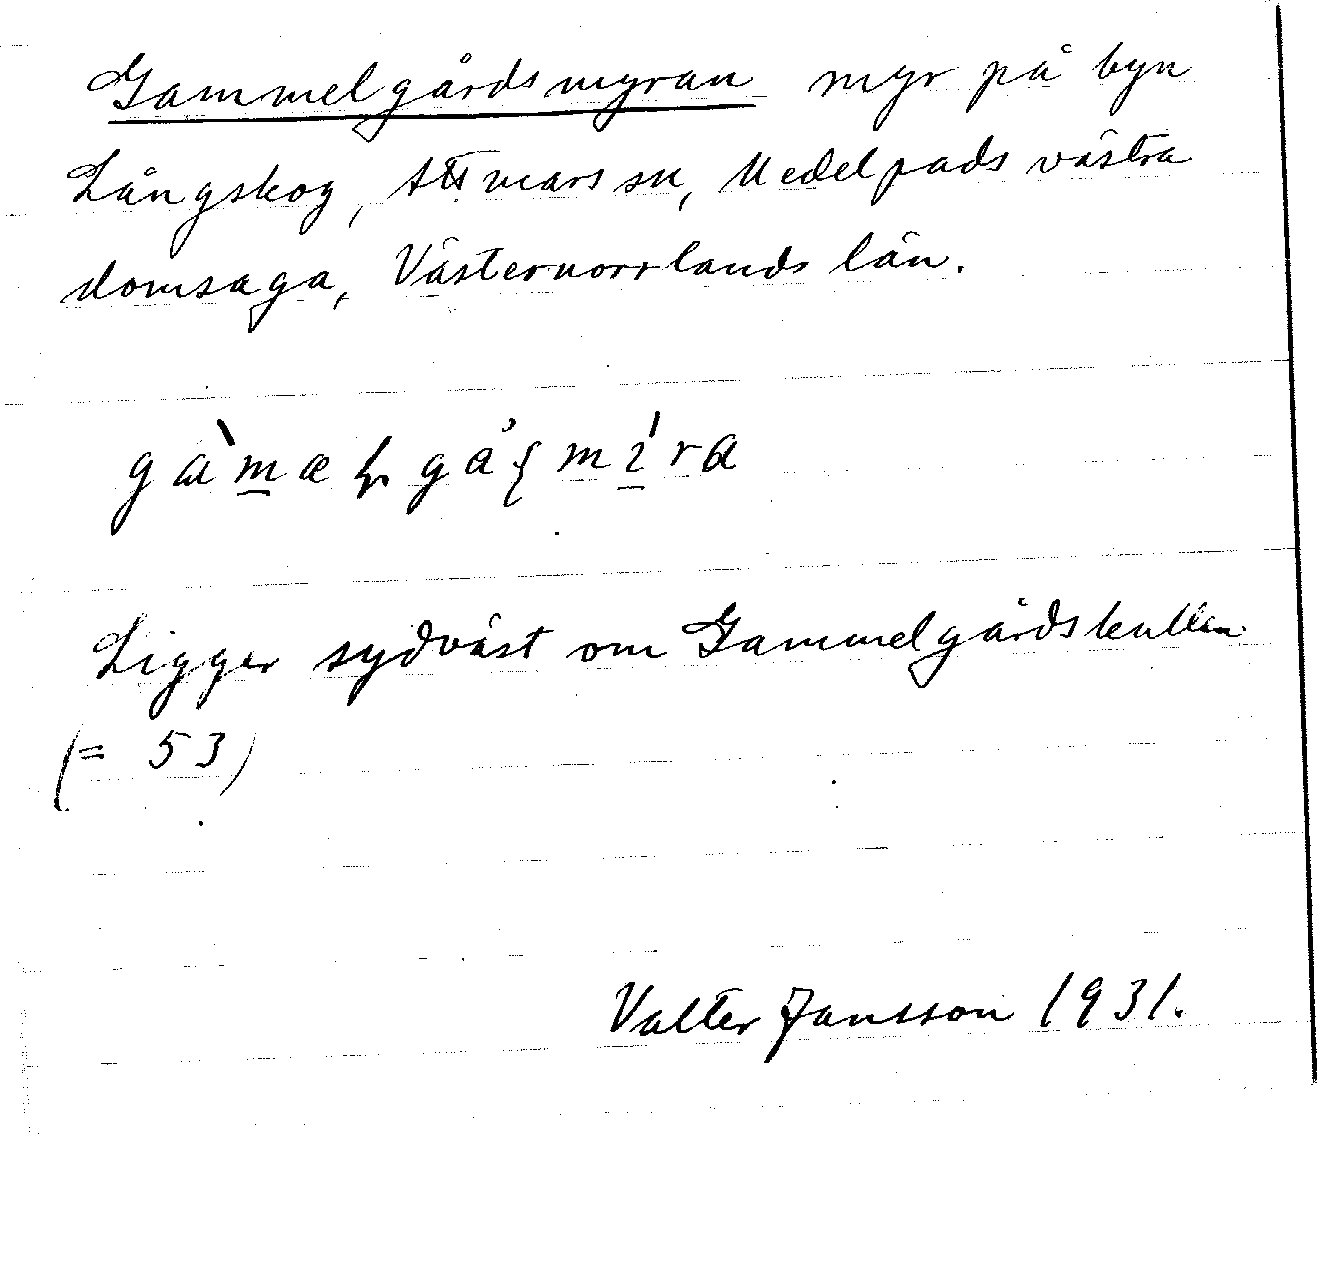 Gammelgårdsmyran myr på byn
Långskog, Attmars sn, Medelpads västra
domsaga, Västernorrlands län.
Ligger sydväst om Gammelgårdskullen
(= 53)
Valter Jansson 1931.